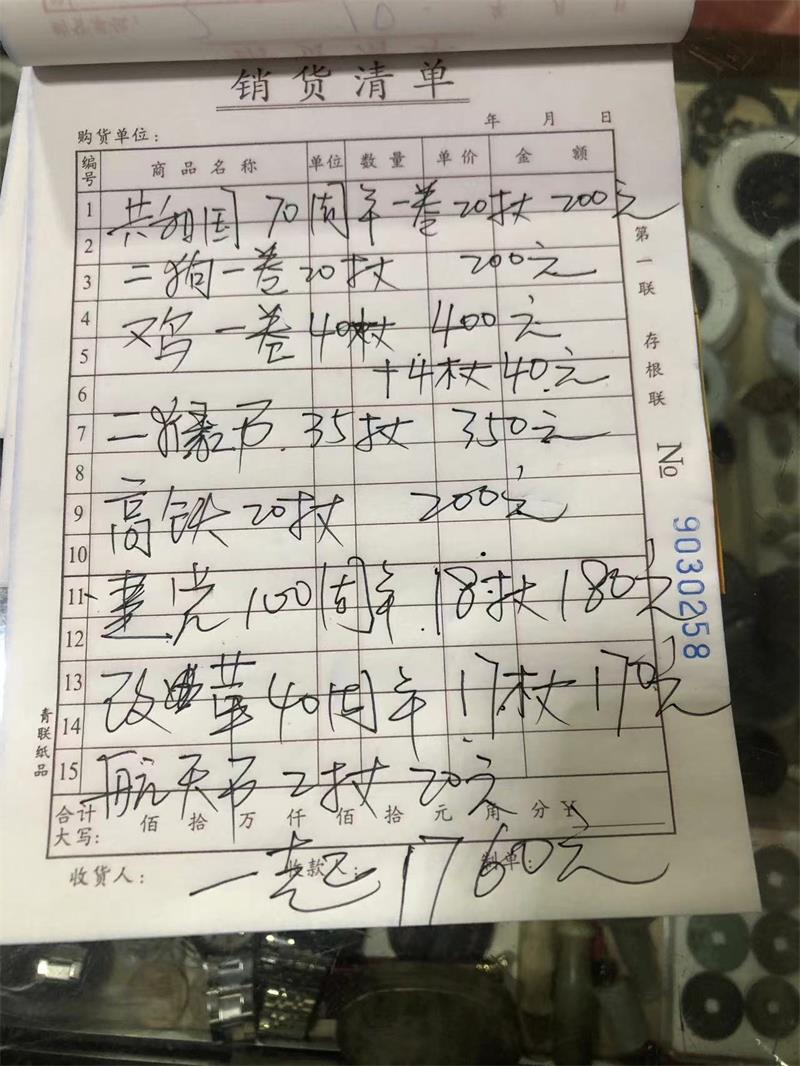 销货清单
年 月 日
购货单位：
编号 商品名称 单位 数量 单价 金额
1 共和国 70周年一卷20枚 200元
2
3 二狗一卷20枚 200元
4 鸡一卷 40枚 400元
5 +4枚40元
6
7 二猪 35枚 350元
8
9 高铁20枚 200元
10
11 建党100周年 18枚 180元
12
13 改革40周年 17枚 170元
14
15 航天币2枚 20元
合计大写： 佰 拾 万 仟 佰 拾 元 角 分 ¥
收货人： 收款人： 制单：
一起1760元
第一联 存根联
No 9030258
青联纸品